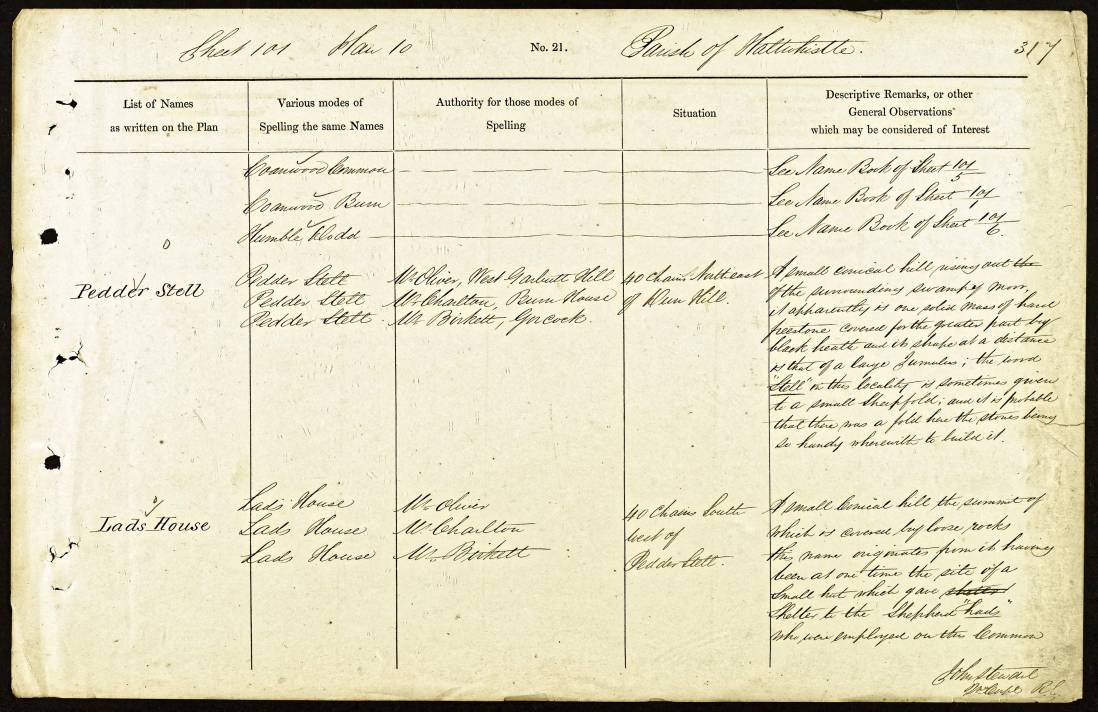 Sheet 101 Plan 10 No. 21. Parish of Haltwhistle. 317
List of Names
as written on the Plan
Various modes of
Spelling the same Names
Authority for those modes of
Spelling
Situation
Descriptive Remarks, or other
General Observations
which may be considered of Interest
Coanwood Common See Name Book of Sheet 101/5
Coanwood Burn See Name Book of Sheet 101/1
Humble Dodd See Name Book of Sheet 101/6
Pedder Stell
Pedder Stell
Pedder Stell
Pedder Stell
Mr. Oliver, West Garbutt Hill
Mr. Charlton, Burn House
Mr. Birkett, Gorcock.
40 Chains North east
of Dun Hill.
A small conical hill, rising out the
of the surrounding swampy moor,
it apparently is one solid mass of hard
freestone covered for the greater part by
black heath and its shape at a distance
is that of a large Tumulus; the word
"Stell" in this locality is sometimes given
to a small Sheepfold; and it is probable
that there was a fold here the stones being
so handy wherewith to build it.
Lads House
Lads House
Lads House
Lads House
Mr. Oliver
Mr. Charlton
Mr. Birkett
40 Chains South
west of
Pedder Stell.
A small Conical hill the summit of
which is covered by loose rocks
this name originates from it having
been at one time the site of a
small hut which gave
Shelter to the Shepherd "Lads"
who were employed on the Common
John Stewart